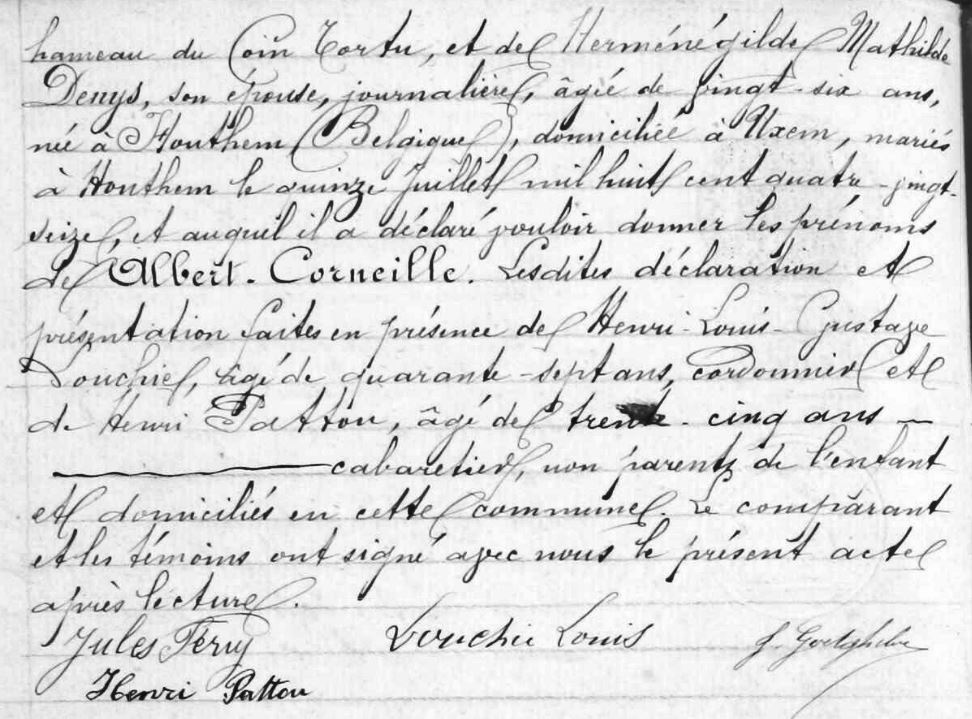 hameau du Coin Tortu, et de Herménégilde Mathilde
Denys, son épouse, journalière, âgée de vingt-six ans,
née à Houthem (Belgique), domiciliée à Uxem, mariés
à Houthem le quinze Juillet mil huit cent quatre-vingt-
seize, et auquel il a déclaré vouloir donner les prénoms
de Albert-Corneille. Lesdites déclaration et
présentation faites en présence de Henri-Louis-Gustave
Vouchie, âgé de quarante-sept ans, cordonnier et
de Henri Patton, âgé de trente-cinq ans —
— cabaretier, non parents de l'enfant
et domiciliés en cette commune. Le comparant
et les témoins ont signé avec nous le présent acte
après lecture.
Jules Fery Louis
Henri Patton